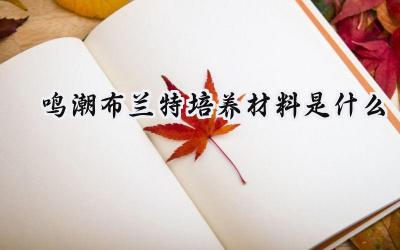 鸣潮布兰特培养材料是什么